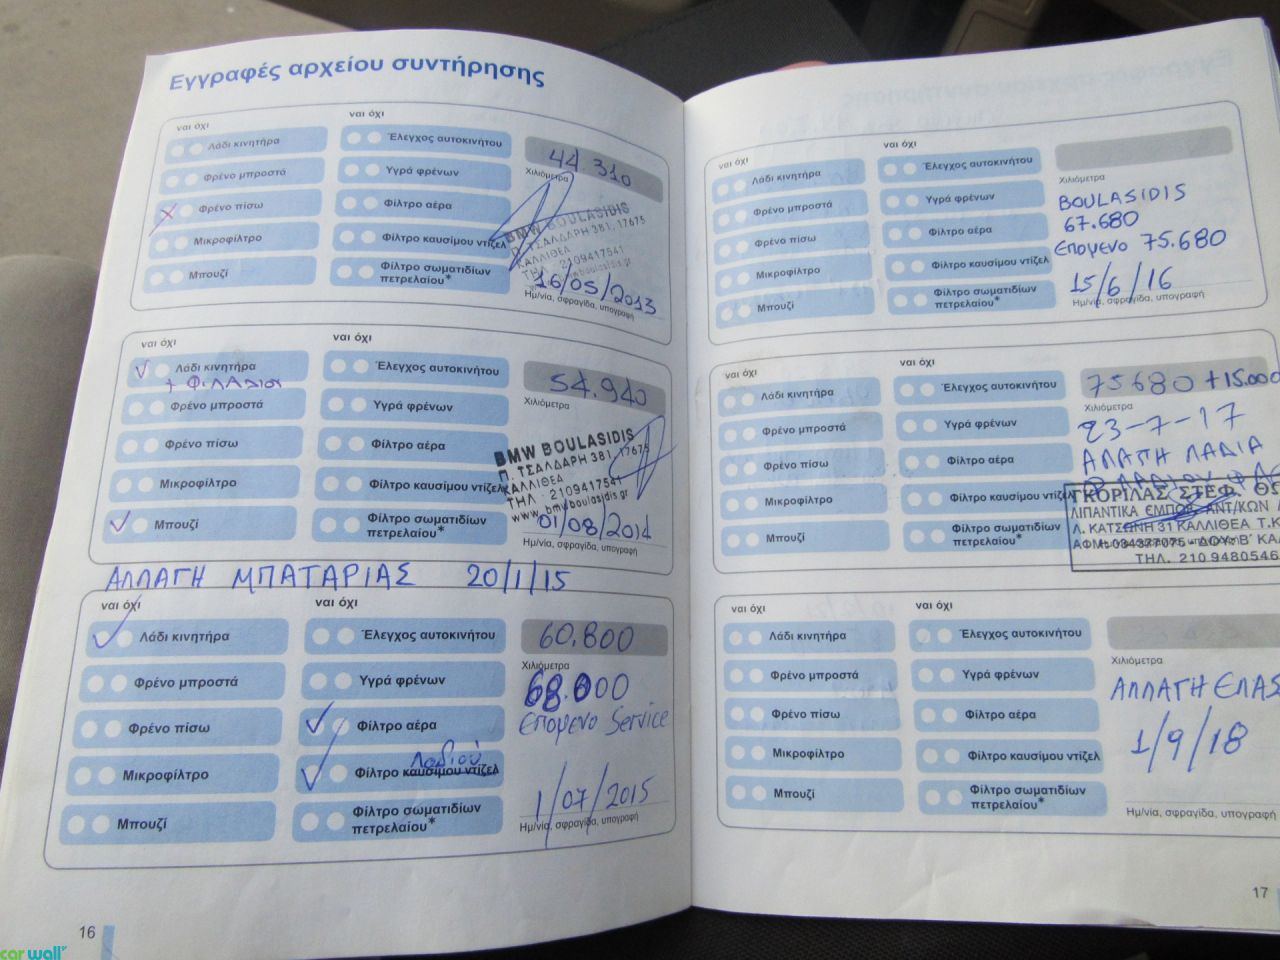 Εγγραφές αρχείου συντήρησης
ναι όχι
ναι όχι
Λάδι κινητήρα
Έλεγχος αυτοκινήτου
44.310
Φρένο μπροστά
Υγρά φρένων
Χιλιόμετρα
Φρένο πίσω
Φίλτρο αέρα
BMW BOULASIDIS
Π. ΤΣΑΛΔΑΡΗ 381, 17675
Μικροφίλτρο
Φίλτρο καυσίμου ντίζελ
ΚΑΛΛΙΘΕΑ
ΤΗΛ : 2109417541
Μπουζί
Φίλτρο σωματιδίων
πετρελαίου*
www.bmwboulasidis.gr
16/05/2013
Ημ/νία, σφραγίδα, υπογραφή
ναι όχι
ναι όχι
Λάδι κινητήρα
Έλεγχος αυτοκινήτου
54.940
+ ΦΙΛ ΛΑΔΙΟΥ
Φρένο μπροστά
Υγρά φρένων
Χιλιόμετρα
Φρένο πίσω
Φίλτρο αέρα
BMW BOULASIDIS
Π. ΤΣΑΛΔΑΡΗ 381, 17675
Μικροφίλτρο
Φίλτρο καυσίμου ντίζελ
ΚΑΛΛΙΘΕΑ
ΤΗΛ : 2109417541
www.bmwboulasidis.gr
Μπουζί
Φίλτρο σωματιδίων
πετρελαίου*
01/08/2014
Ημ/νία, σφραγίδα, υπογραφή
ΑΛΛΑΓΗ ΜΠΑΤΑΡΙΑΣ 20/1/15
ναι όχι
ναι όχι
Λάδι κινητήρα
Έλεγχος αυτοκινήτου
60.800
Φρένο μπροστά
Υγρά φρένων
Χιλιόμετρα
68.000
Φρένο πίσω
Φίλτρο αέρα
επομενο Service
Λαδιού
Μικροφίλτρο
Φίλτρο καυσίμου ντίζελ
Μπουζί
Φίλτρο σωματιδίων
πετρελαίου*
1/07/2015
Ημ/νία, σφραγίδα, υπογραφή
16
ναι όχι
ναι όχι
Λάδι κινητήρα
Έλεγχος αυτοκινήτου
Φρένο μπροστά
Υγρά φρένων
Χιλιόμετρα
BOULASIDIS
Φρένο πίσω
Φίλτρο αέρα
67.680
Μικροφίλτρο
Φίλτρο καυσίμου ντίζελ
επομενο 75.680
Μπουζί
Φίλτρο σωματιδίων
πετρελαίου*
15/6/16
Ημ/νία, σφραγίδα, υπογραφή
ναι όχι
ναι όχι
Λάδι κινητήρα
Έλεγχος αυτοκινήτου
75680 +15.000
Φρένο μπροστά
Υγρά φρένων
Χιλιόμετρα
23-7-17
Φρένο πίσω
Φίλτρο αέρα
ΑΛΑΓΗ ΛΑΔΙΑ
Μικροφίλτρο
Φίλτρο καυσίμου ντίζελ
ΓΚΟΡΙΛΑΣ ΣΤΕΦ. ΘΩ
ΛΙΠΑΝΤΙΚΑ ΕΜΠΟΡ. ΑΝΤ/ΚΩΝ
Μπουζί
Φίλτρο σωματιδίων
πετρελαίου*
Λ. ΚΑΤΣΩΝΗ 31 ΚΑΛΛΙΘΕΑ Τ.Κ
ΑΦΜ: 034377075 - ΔΟΥ: Β' ΚΑΛ
ΤΗΛ. 210 9480546
ναι όχι
ναι όχι
Λάδι κινητήρα
Έλεγχος αυτοκινήτου
Φρένο μπροστά
Υγρά φρένων
Χιλιόμετρα
Φρένο πίσω
Φίλτρο αέρα
ΑΛΛΑΓΗ ΕΛΑΣ
Μικροφίλτρο
Φίλτρο καυσίμου ντίζελ
1/9/18
Μπουζί
Φίλτρο σωματιδίων
πετρελαίου*
Ημ/νία, σφραγίδα, υπογραφή
17
car wall